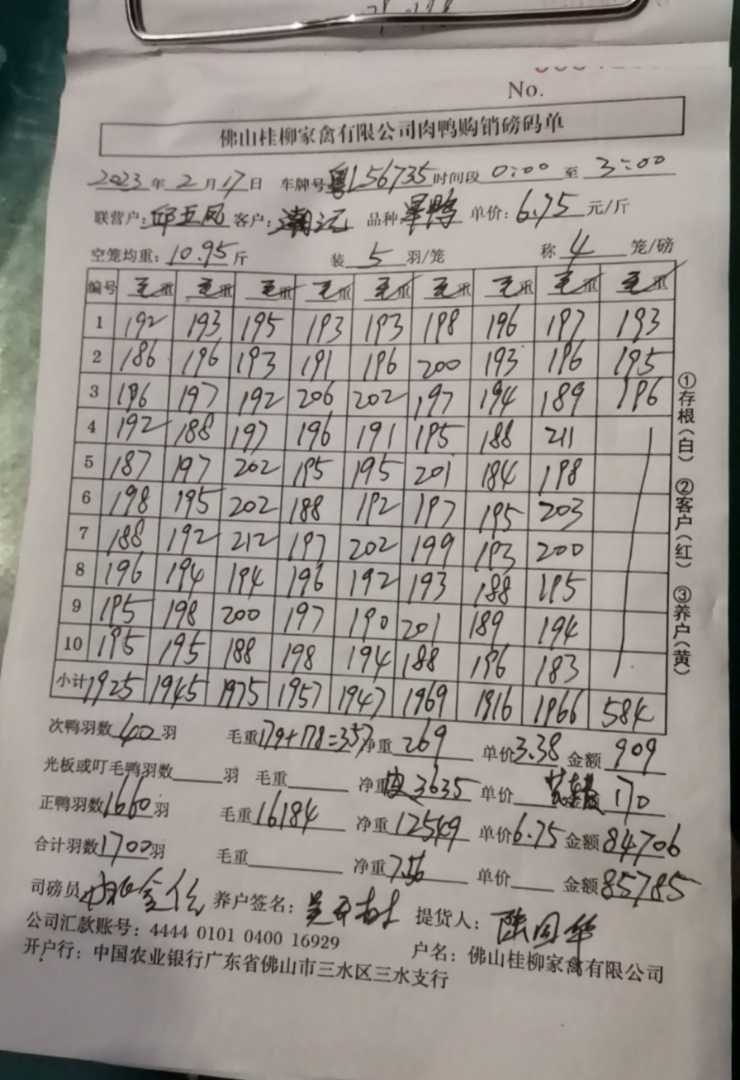 No.
佛山桂柳家禽有限公司肉鸭购销磅码单
2023年2月17日 车牌号粤L56735时间段0:00至3:00
联营户:邱亚凤 客户: 品种 单价:6.75元/斤
空笼均重:10.95斤 装5羽/笼 称4笼/磅
编号 毛重 毛重 毛重 毛重 毛重 毛重 毛重 毛重 毛重
1 192 193 195 193 193 198 196 197 193
2 186 196 193 191 196 200 193 196 195
3 196 197 192 206 202 197 194 189 196
4 192 188 197 196 191 195 188 211
5 187 197 202 195 195 201 184 198
6 198 195 202 188 192 197 195 203
7 188 192 212 197 202 199 193 200
8 196 194 194 196 192 193 188 195
9 195 198 200 197 190 201 189 194
10 195 195 188 198 194 188 196 183
小计 1925 1945 1975 1957 1947 1969 1916 1966 584
次鸭羽数40羽 毛重179+178=357净重269 单价3.38 金额909
光板或叮毛鸭羽数 羽 毛重 净重3635 单价 170
正鸭羽数1660羽 毛重16184 净重12549 单价6.75 金额84706
合计羽数1700羽 毛重 净重7.56 单价 金额85785
司磅员 养户签名: 提货人:陈国华
公司汇款账号:4444 0101 0400 16929 户名:佛山桂柳家禽有限公司
开户行:中国农业银行广东省佛山市三水区三水支行
①存根(白) ②客户(红) ③养户(黄)